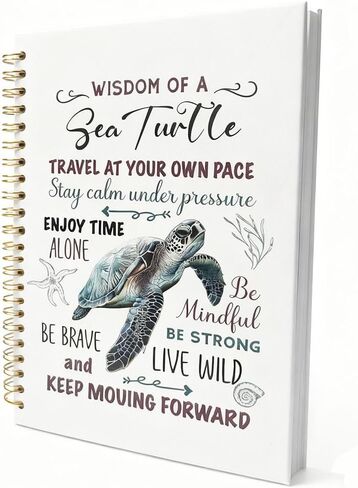 WISDOM OF A
Sea Turtle
TRAVEL AT YOUR OWN PACE
Stay calm under pressure
ENJOY TIME
ALONE
Be
Mindful
BE BRAVE
BE STRONG
and
LIVE WILD
KEEP MOVING FORWARD